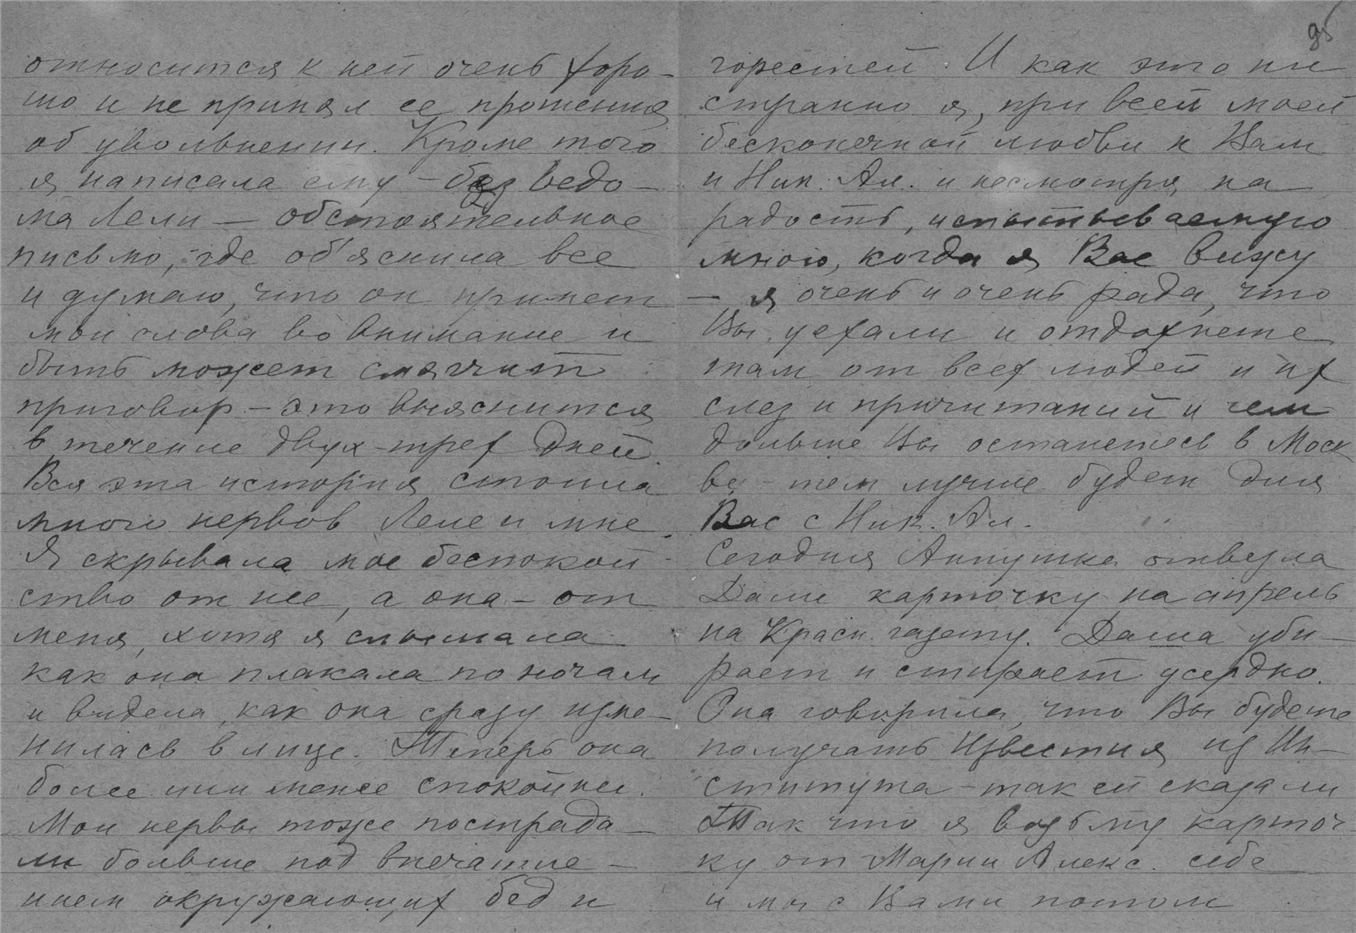 относится к ней очень хоро-
шо и не принял ее прошения
об увольнении. Кроме того
я написала ему – без ведо-
ма Лели – обстоятельное
письмо, где об'яснила все
и думаю, что он примет
мои слова во внимание и
быть может смягчит
приговор – это выяснится
в течение двух-трех дней.
Вся эта история стоила
много нервов Леле и мне.
Я скрывала мое беспокой-
ство от нее, а она – от
меня, хотя я слышала
как она плакала по ночам
и видела, как она сразу изме-
нилась в лице. Теперь она
более или менее спокойнее.
Мои нервы тоже пострада-
ли больше под впечатле-
нием окружающих бед и
95
горестей. И как это ни
странно я, при всей моей
бесконечной любви к Вам
и Ник. Ал. и несмотря на
радость, испытываемую
мною, когда я Вас вижу
– я очень и очень рада, что
Вы уехали и отдохнете
там от всех людей и их
слез и причитаний и чем
дольше Вы останетесь в Моск
ве – тем лучше будет для
Вас с Ник. Ал.
Сегодня Аннушка отвезла
Даше карточку на апрель
на Красн. газету. Даша уби-
рает и стирает усердно.
Она говорила, что Вы будете
получать Известия из Ин-
ститута – так ей сказали
Так что я возьму карточ-
ку от Марии Алекс. себе
и мы с Вами потом